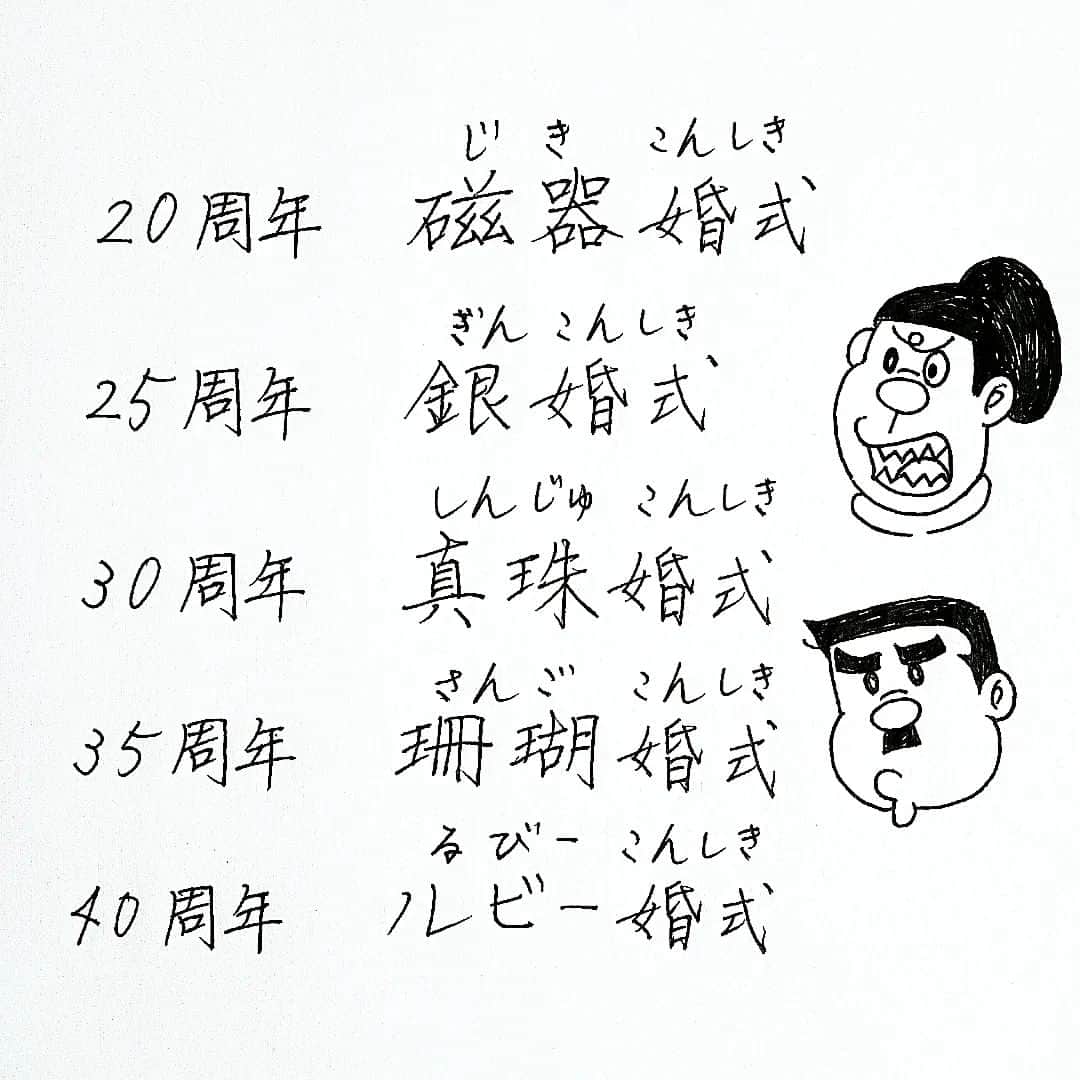 じき こんしき
20周年 磁器婚式
ぎんこんしき
25周年 銀婚式
しんじゅ こんしき
30周年 真珠婚式
さんご こんしき
35周年 珊瑚婚式
るびー こんしき
40周年 ルビー婚式